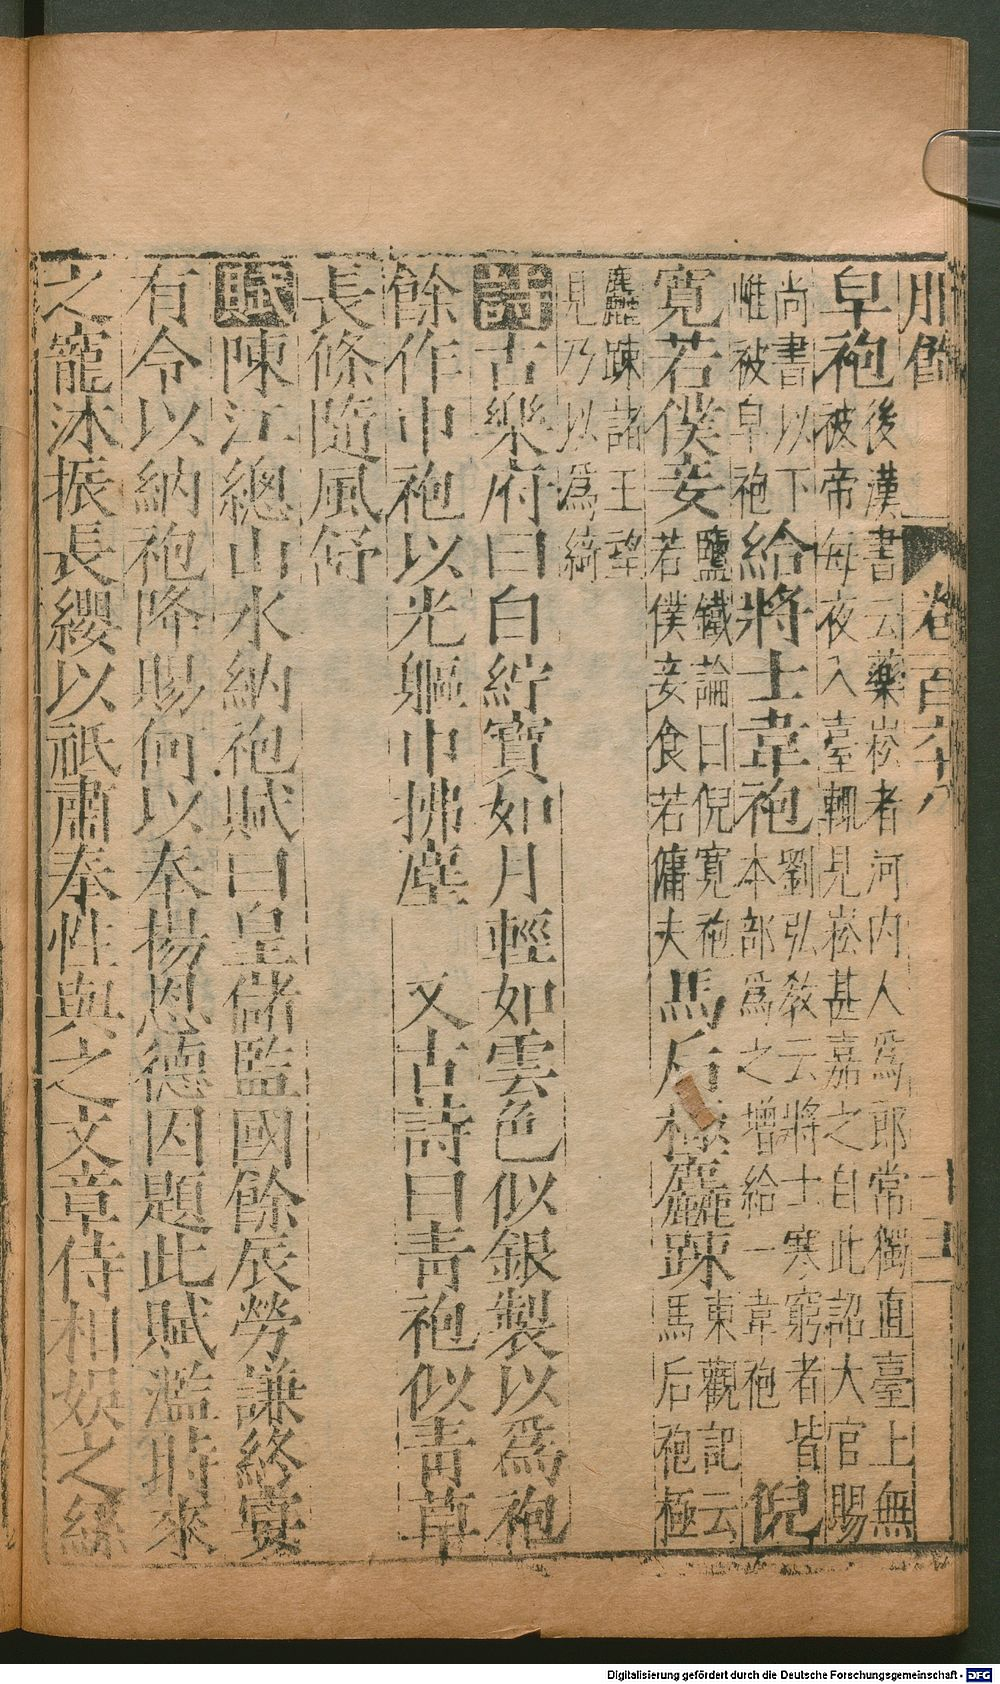 服飾 卷一百六十八 十三
皁袍 後漢書云藥崧者河内人爲郎常獨直臺上無
被帝每夜入臺輒見崧甚嘉之自此詔大官賜
尚書以下
惟被皁袍 給將士韋袍 劉弘敎云將士寒窮者皆
本部爲之增給一韋袍 倪
寬若僕妾 鹽鐵論曰倪寬袍
若僕妾食若傭夫 馬后極麤踈 東觀記云
馬后袍極
麤踈諸王望
見乃以爲綺
詩古樂府曰白紵寶如月輕如雲色似銀製以爲袍
餘作巾袍以光軀巾拂塵 又古詩曰青袍似青草
長條隨風舒
賦陳江總山水納袍賦曰皇儲監國餘辰勞謙終宴
有令以納袍降賜何以奉揚恩德因題此賦濫時來
之寵沐振長纓以祇肅奉性與之文章侍相娛之絲
Digitalisierung gefördert durch die Deutsche Forschungsgemeinschaft - DFG